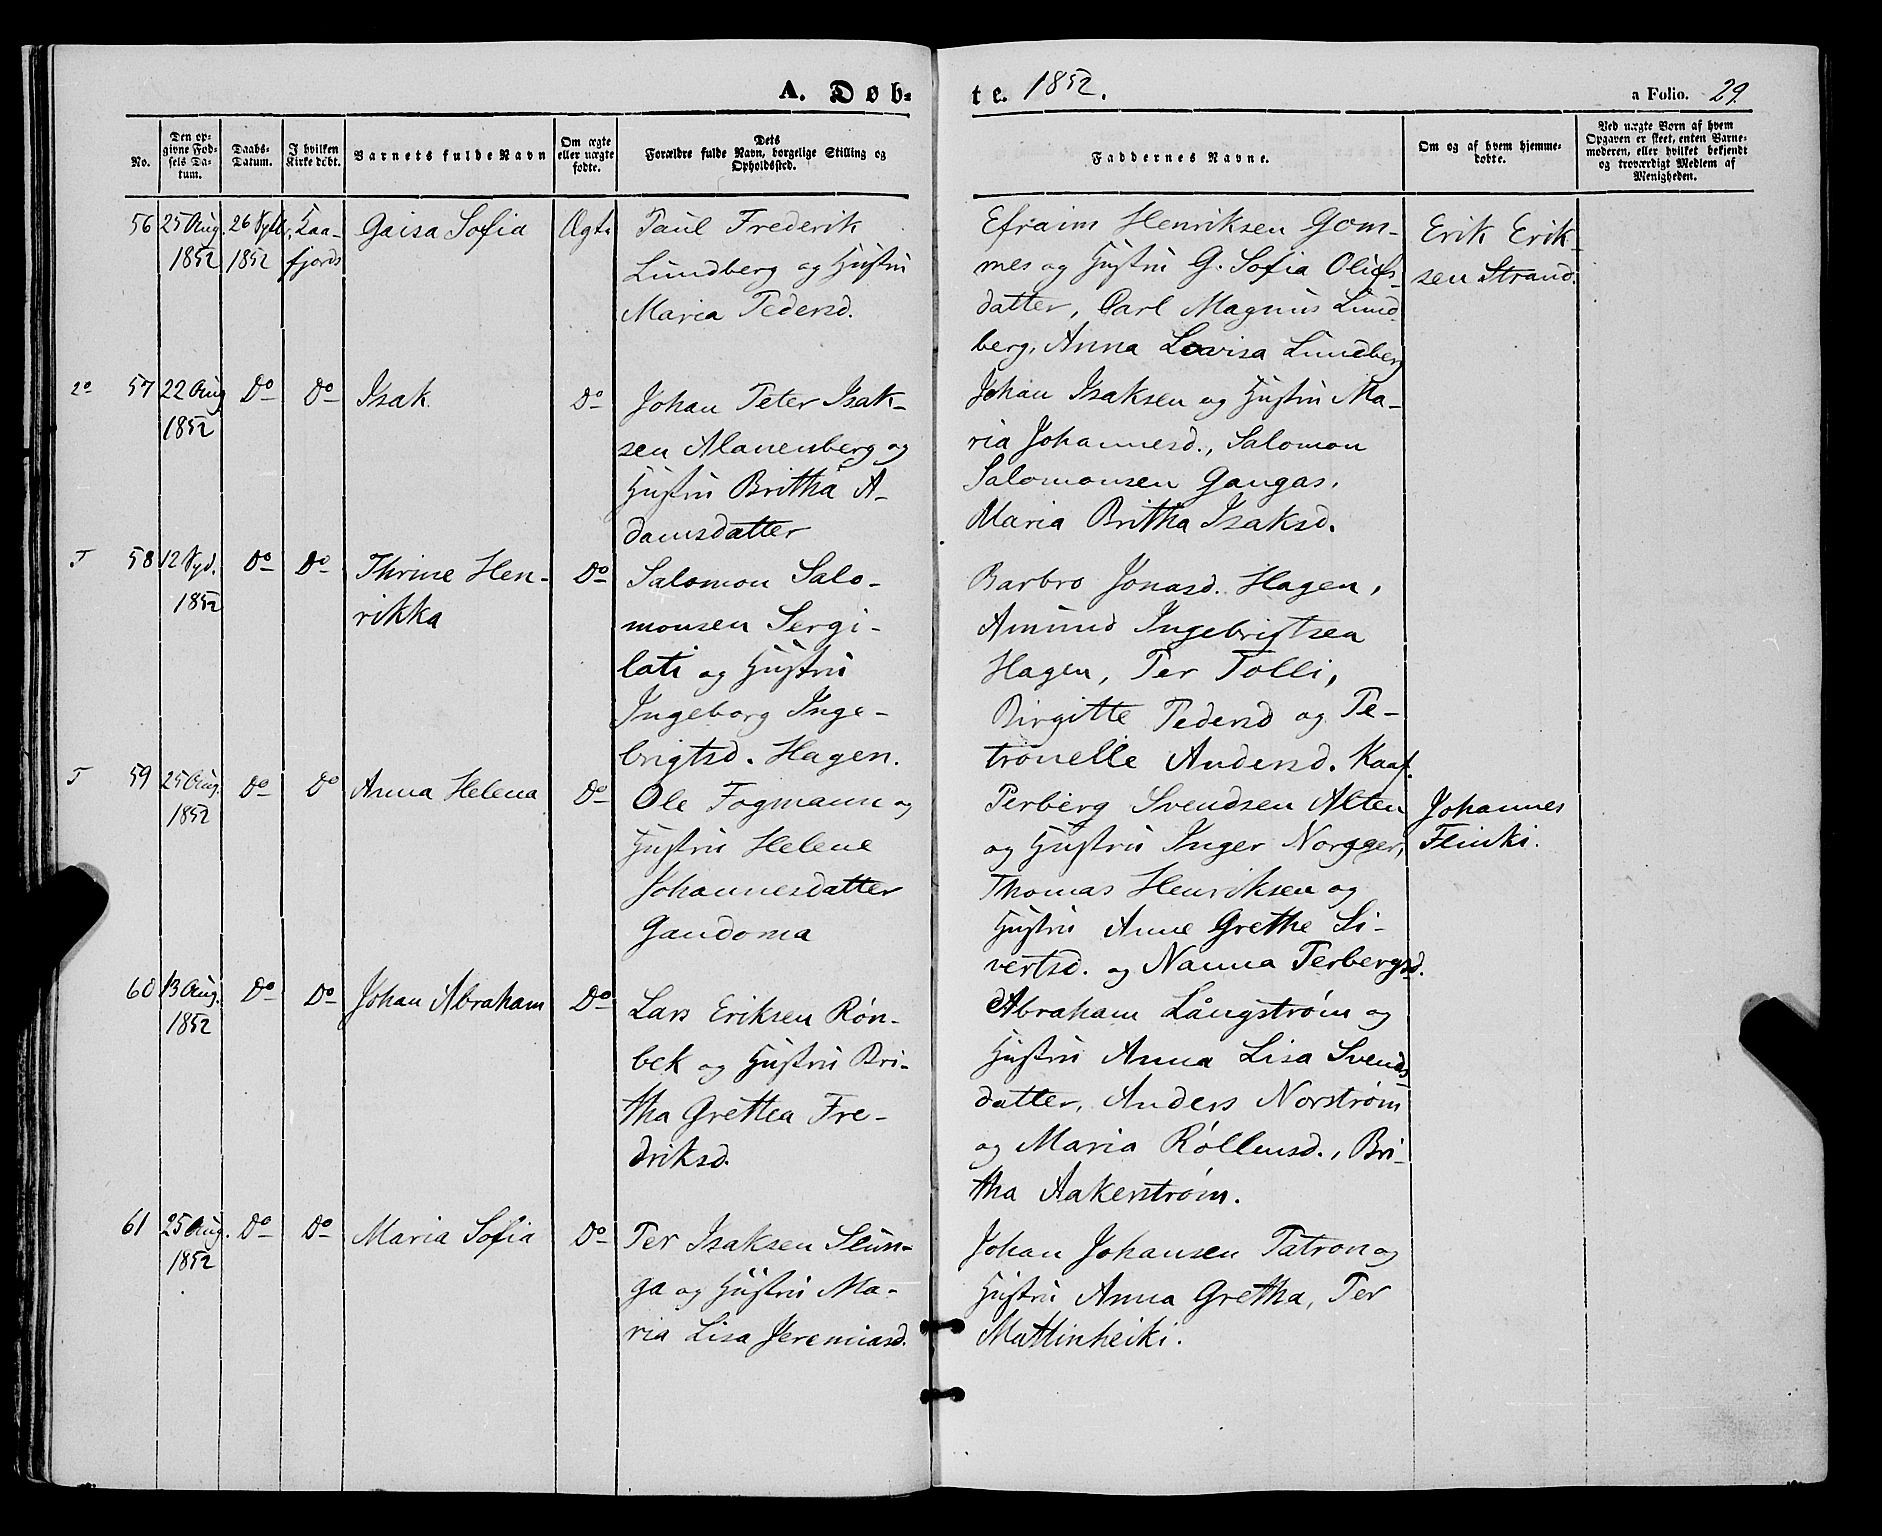 A. Døb-
te. 1852.
a Folio. 29.
No.
Den op-
givne Fød-
sels Da-
tum.
Daabs-
Datum.
I hvilken
Kirke døbt.
Barnets fulde Navn
Om ægte
eller uægte
fødte.
Dets
Forældre fulde Navn, borgelige Stilling og
Opholdssted.
Faddernes Navne.
Om og af hvem hjemme-
døbte.
Ved uægte Børn af hvem
Opgaven er skeet, enten Barne-
moderen, eller hvilket bekjendt
og troværdigt Medlem af
Menigheden.
56
25 Aug.
1852
26 Sptbr.
1852
Kaa-
fjords
Gaisa Sofia
Ægte
Paul Frederik
Lundberg og Hustru
Maria Pedersd.
Efraim Henriksen Gom-
mes og Hustru G. Sofia Olufs-
datter, Carl Magnus Lund-
berg, Anna Lovisa Lundberg
Erik Erik-
sen Strand.
2º
57
22 Aug
1852
Dº
Dº
Isak.
Dº
Johan Peter Isak-
sen Alanenberg og
Hustru Britha A-
damsdatter
Johan Isaksen og Hustru Ma-
ria Johannesd., Salomon
Salomonsen Gangas,
Maria Britha Isaksd.
T
58
12
1852
Dº
Dº
Thrine Hen-
rikka
Dº
Salomon Salo-
monsen Sergi-
lati og Hustru
Ingeborg Inge-
brigtsd. Hagen.
Barbro Jonasd. Hagen,
Amund Ingebrigtsen
Hagen, Per Tolli,
Birgitte Pedersd og Pe-
tronelle Andersd. Kaaf.
T
59
25 Aug.
1852
Dº
Dº
Anna Helena
Dº
Ole Fogmann og
Hustru Helene
Johannesdatter
Gandoma
Perberg Svendsen Alten
og Hustru Inger Norgger,
Thomas Henriksen og
Hustru Anne Grethe Si-
vertsd. og Nanna Perbergsd.
Johannes
Flinki.
60
13 Aug.
1852
Dº
Dº
Johan Abraham
Dº
Lars Eriksen Røn-
bek og Hustru Bri-
tha Grethea Fre-
driksd.
Abraham Långstrøm og
Hustru Anna Lisa Svends-
datter, Anders Norstrøm
og Maria Røllensd., Bri-
tha Aakerstrøm.
61
25 Aug.
1852
Dº
Dº
Maria Sofia
Dº
Per Isaksen Slun-
ga og Hustru Ma-
ria Lisa Jeremiasd.
Johan Johansen Patron og
Hustru Anna Gretha, Per
Mattinheiki.